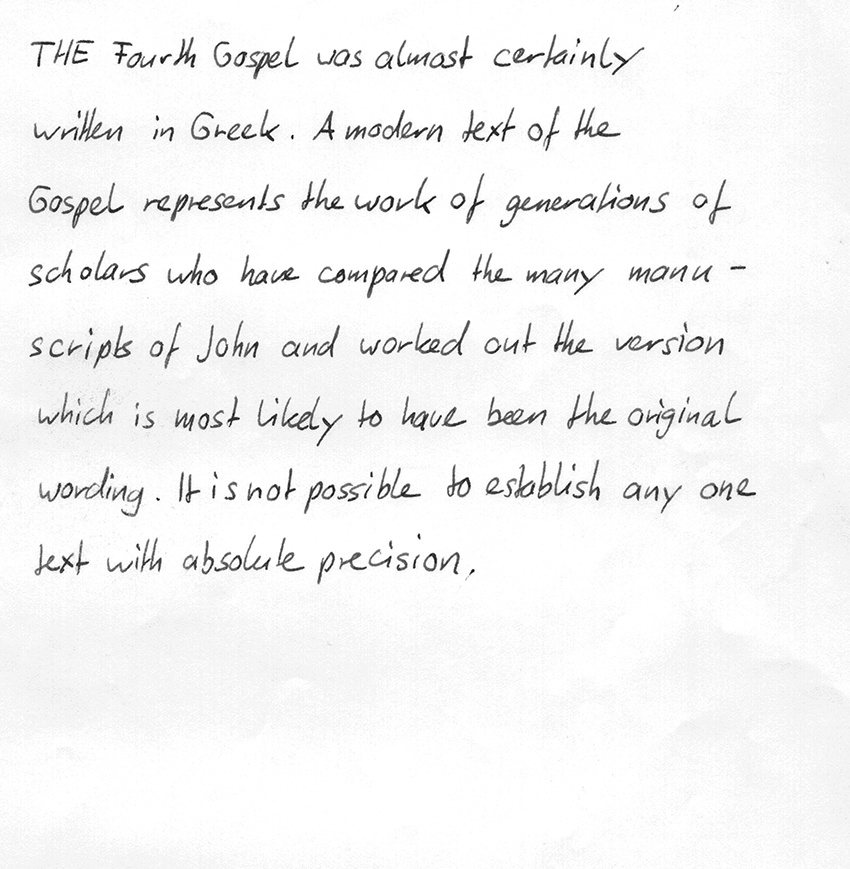 THE Fourth Gospel was almost certainly
written in Greek. A modern text of the
Gospel represents the work of generations of
scholars who have compared the many manu-
scripts of John and worked out the version
which is most likely to have been the original
wording. It is not possible to establish any one
text with absolute precision.